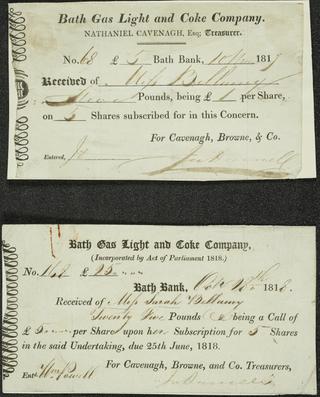 Bath Gas Light and Coke Company.
NATHANIEL CAVENAGH, Esq; Treasurer.
No. 68 £ 5 Bath Bank, 181
Received of Miss Bellamy
Pounds, being £ 1 per Share,
on 5 Shares subscribed for in this Concern.
For Cavenagh, Browne, & Co.
Entered,
Bath Gas Light and Coke Company,
(Incorporated by Act of Parliament 1818.)
No. £ 25
Bath Bank, 1818.
Received of Miss Sarah Bellamy
Twenty Five Pounds being a Call of
£ 5 per Share upon her Subscription for 5 Shares
in the said Undertaking, due 25th June, 1818.
For Cavenagh, Browne, and Co. Treasurers,
Entd. Wm. Powell